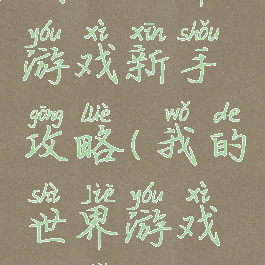 yóu xì xīn shǒu
游戏新手
gōng lüè wǒ de
攻略(我的
shì jiè yóu xì
世界游戏